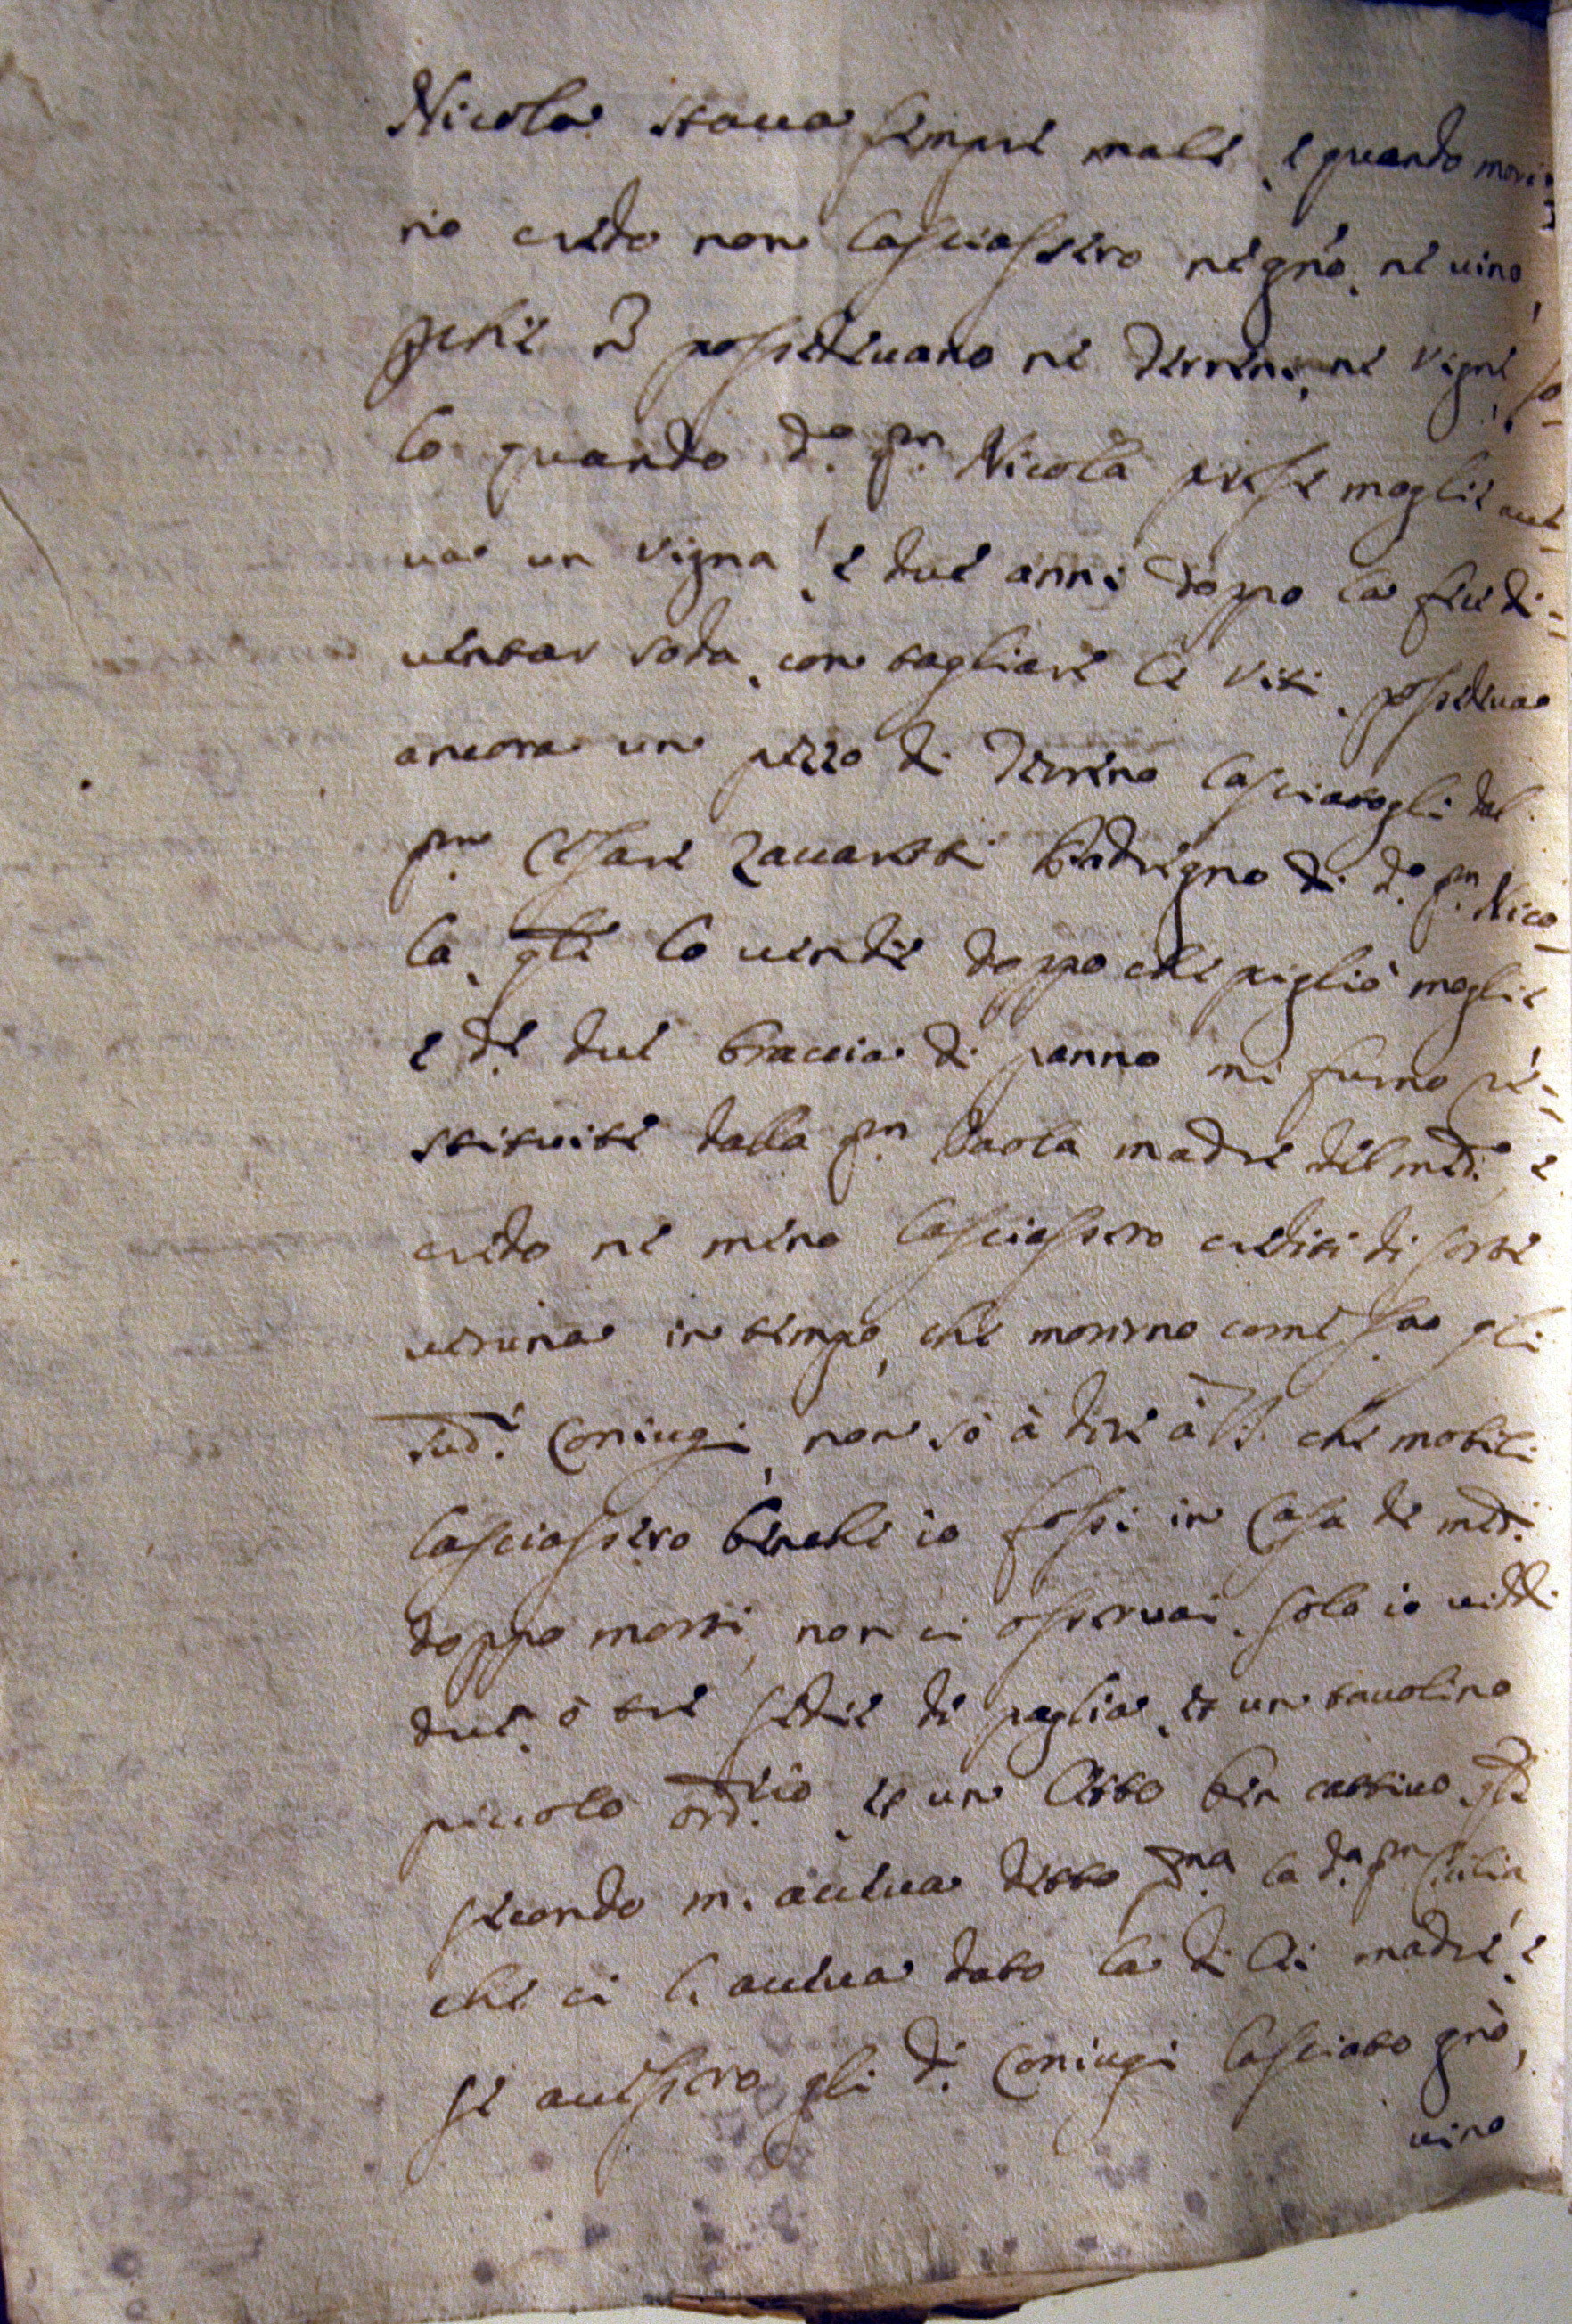 Nicola staua sempre male, e quando mori:
no credo non lasciassero né gnò, ne uino,
perche ñ possedeuano ne terreni, ne vigne, so=
lo quando d.º q.m Nicola prese moglie aue=
ua un vigna, e due anni doppo la fece di=
uentar soda, con tagliare le viti, possedeua
ancora un pezzo di terreno lasciatogli dal
q.m Cesare Zauaretti Padregno di d.º q.m Nico=
la, qle lo uendè doppo che pigliò moglie
e d.e due braccia di panno mi furno re=
stituite dalla q.m Paola madre del med.º, e
credo ne meno lasciassero crediti di sorte
ueruna in tempo, che morirno come sop.a gli
sud.i Coniugi, non sò à dire à V.S. che mobili
lasciassero benche io fossi in Casa de med.i
doppo morti, non ci osseruai, solo io uiddi
due, ò tre sedie di paglia, et un tauolino
piccolo ord.rio, et un letto ben cattiuo, qle
secondo m'aueua detto p.ma la d.a q.m Giulia
che ci l'aueua dato la di lei madre, e
se auessero gli d.i Coniugi lasciato gnò,
uino